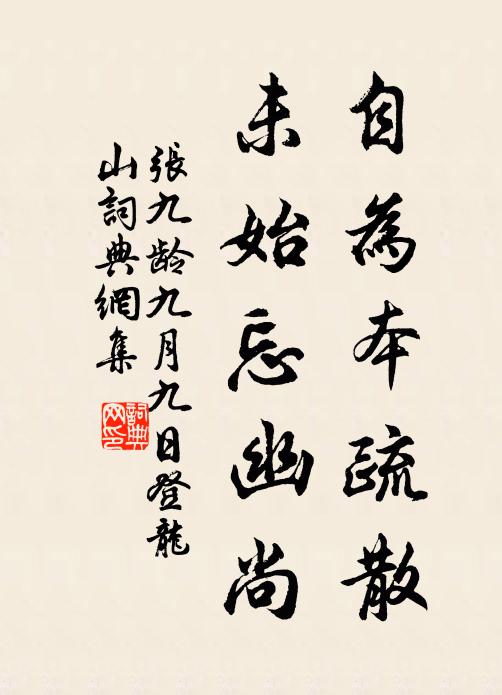 自為本疏散
未始忘幽尚
張九龄九月九日登龍
山詞典網集
詞典
网印